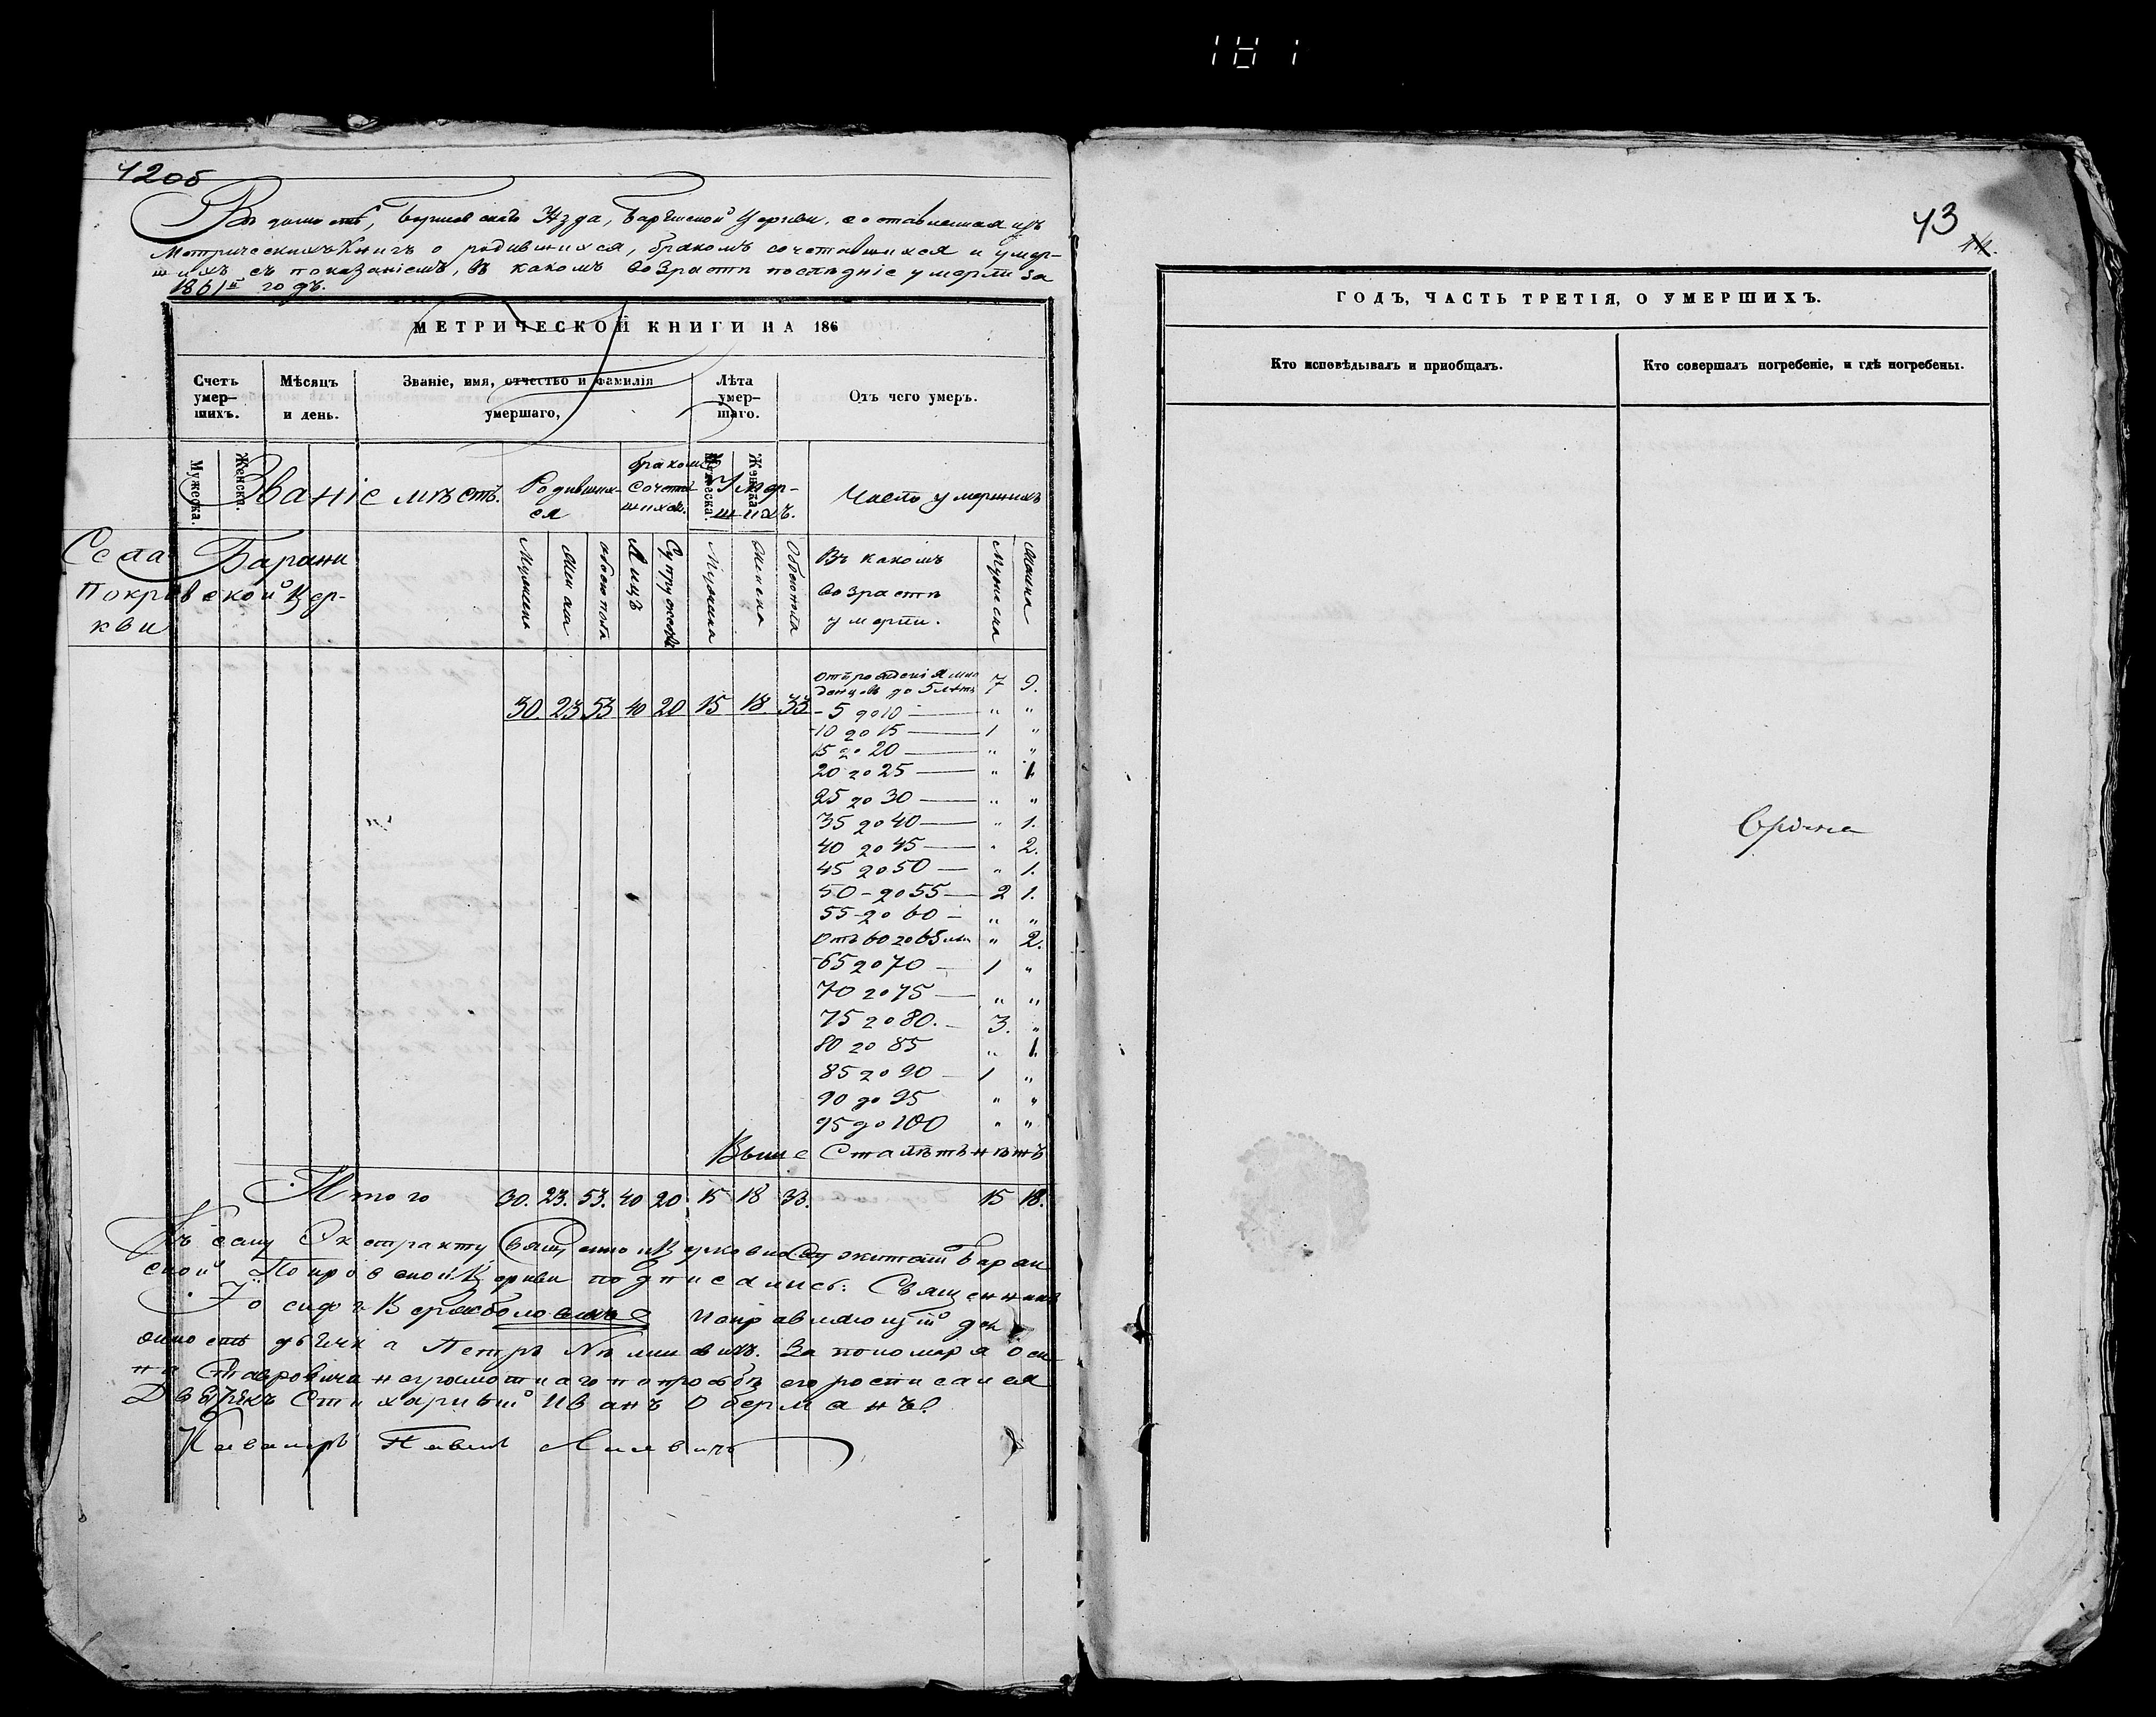 181
42об
Ведомость, Борисовскаго Уѣзда, Баранской Церкви, составленная изъ
Метрическихъ Книгъ о родившихся, бракомъ сочетавшихся и умер-
шихъ съ показаніемъ, въ какомъ возрастѣ послѣдніе умерли за
1861й годъ.
МЕТРИЧЕСКОЙ КНИГИ НА 186
Счетъ умер-шихъ. Мѣсяцъ и день. Званіе, имя, отчество и фамилія умершаго, Лѣта умер-шаго. Отъ чего умеръ.
Мужеска. Женска. Мужеска. Женска.
Званіе мѣстъ. Родивших-ся бракомъ сочетав-шихся. Умер-шихъ. Число умершихъ
Села Барани
Покровской Цер-
кви
Мужеска Женска обоего пола Лицъ Супружествъ Мужеска Женска Обоего пола Въ какомъ возрастѣ умерли. Мужеска Женска
Отъ рожденія мла
денцовъ до 5 лѣтъ 7 9.
30. 23 53 40 20 15 18. 33
- 5 до 10 — " "
-10 до 15 — 1 "
15 до 20 — " "
20 до 25 — " 1.
25 до 30 — " "
35 до 40 — " 1.
40 до 45 — " 2.
45 до 50 — " 1.
50 - до 55 — 2 1.
55 - до 60 — " "
Отъ 60 до 65 лѣт " 2.
-65 до 70 — 1 "
70 до 75 — " "
75 до 80. — 3. "
80 до 85 " 1.
85 до 90 — 1 "
90 до 95 " "
95 до 100 " "
Выше Сталѣтъ нѣтъ
Итого 30. 23. 53. 40 20. 15 18 33. 15 18.
Къ сему Экстракту Священно и Церковно Служители Баран
ской Покровской Церкви подписались: Священникъ
Іосифъ исправляющій дол
жность дьячка Петръ За пономаря Оси
па неграмотнаго по прозьбѣ его росписался
Стихарный Иванъ Оберманъ.
Павелъ
43
44.
ГОДЪ, ЧАСТЬ ТРЕТІЯ, О УМЕРШИХЪ.
Кто исповѣдывалъ и пріобщалъ. Кто совершалъ погребеніе, и гдѣ погребены.